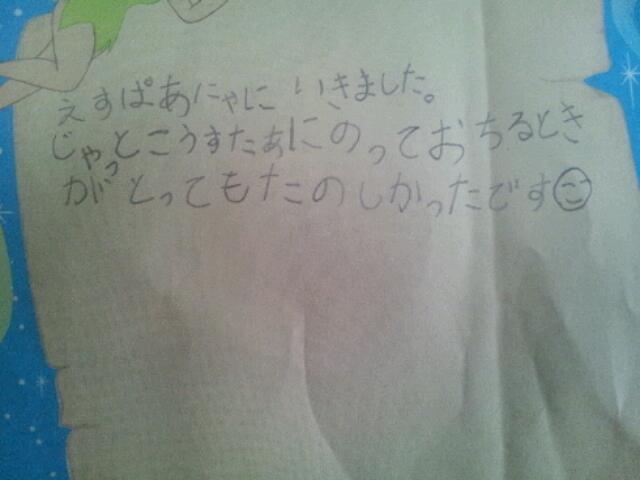 えすぱあにゃに いきました。
じゃっとこうすたぁにのっておちるとき
がとってもたのしかったです